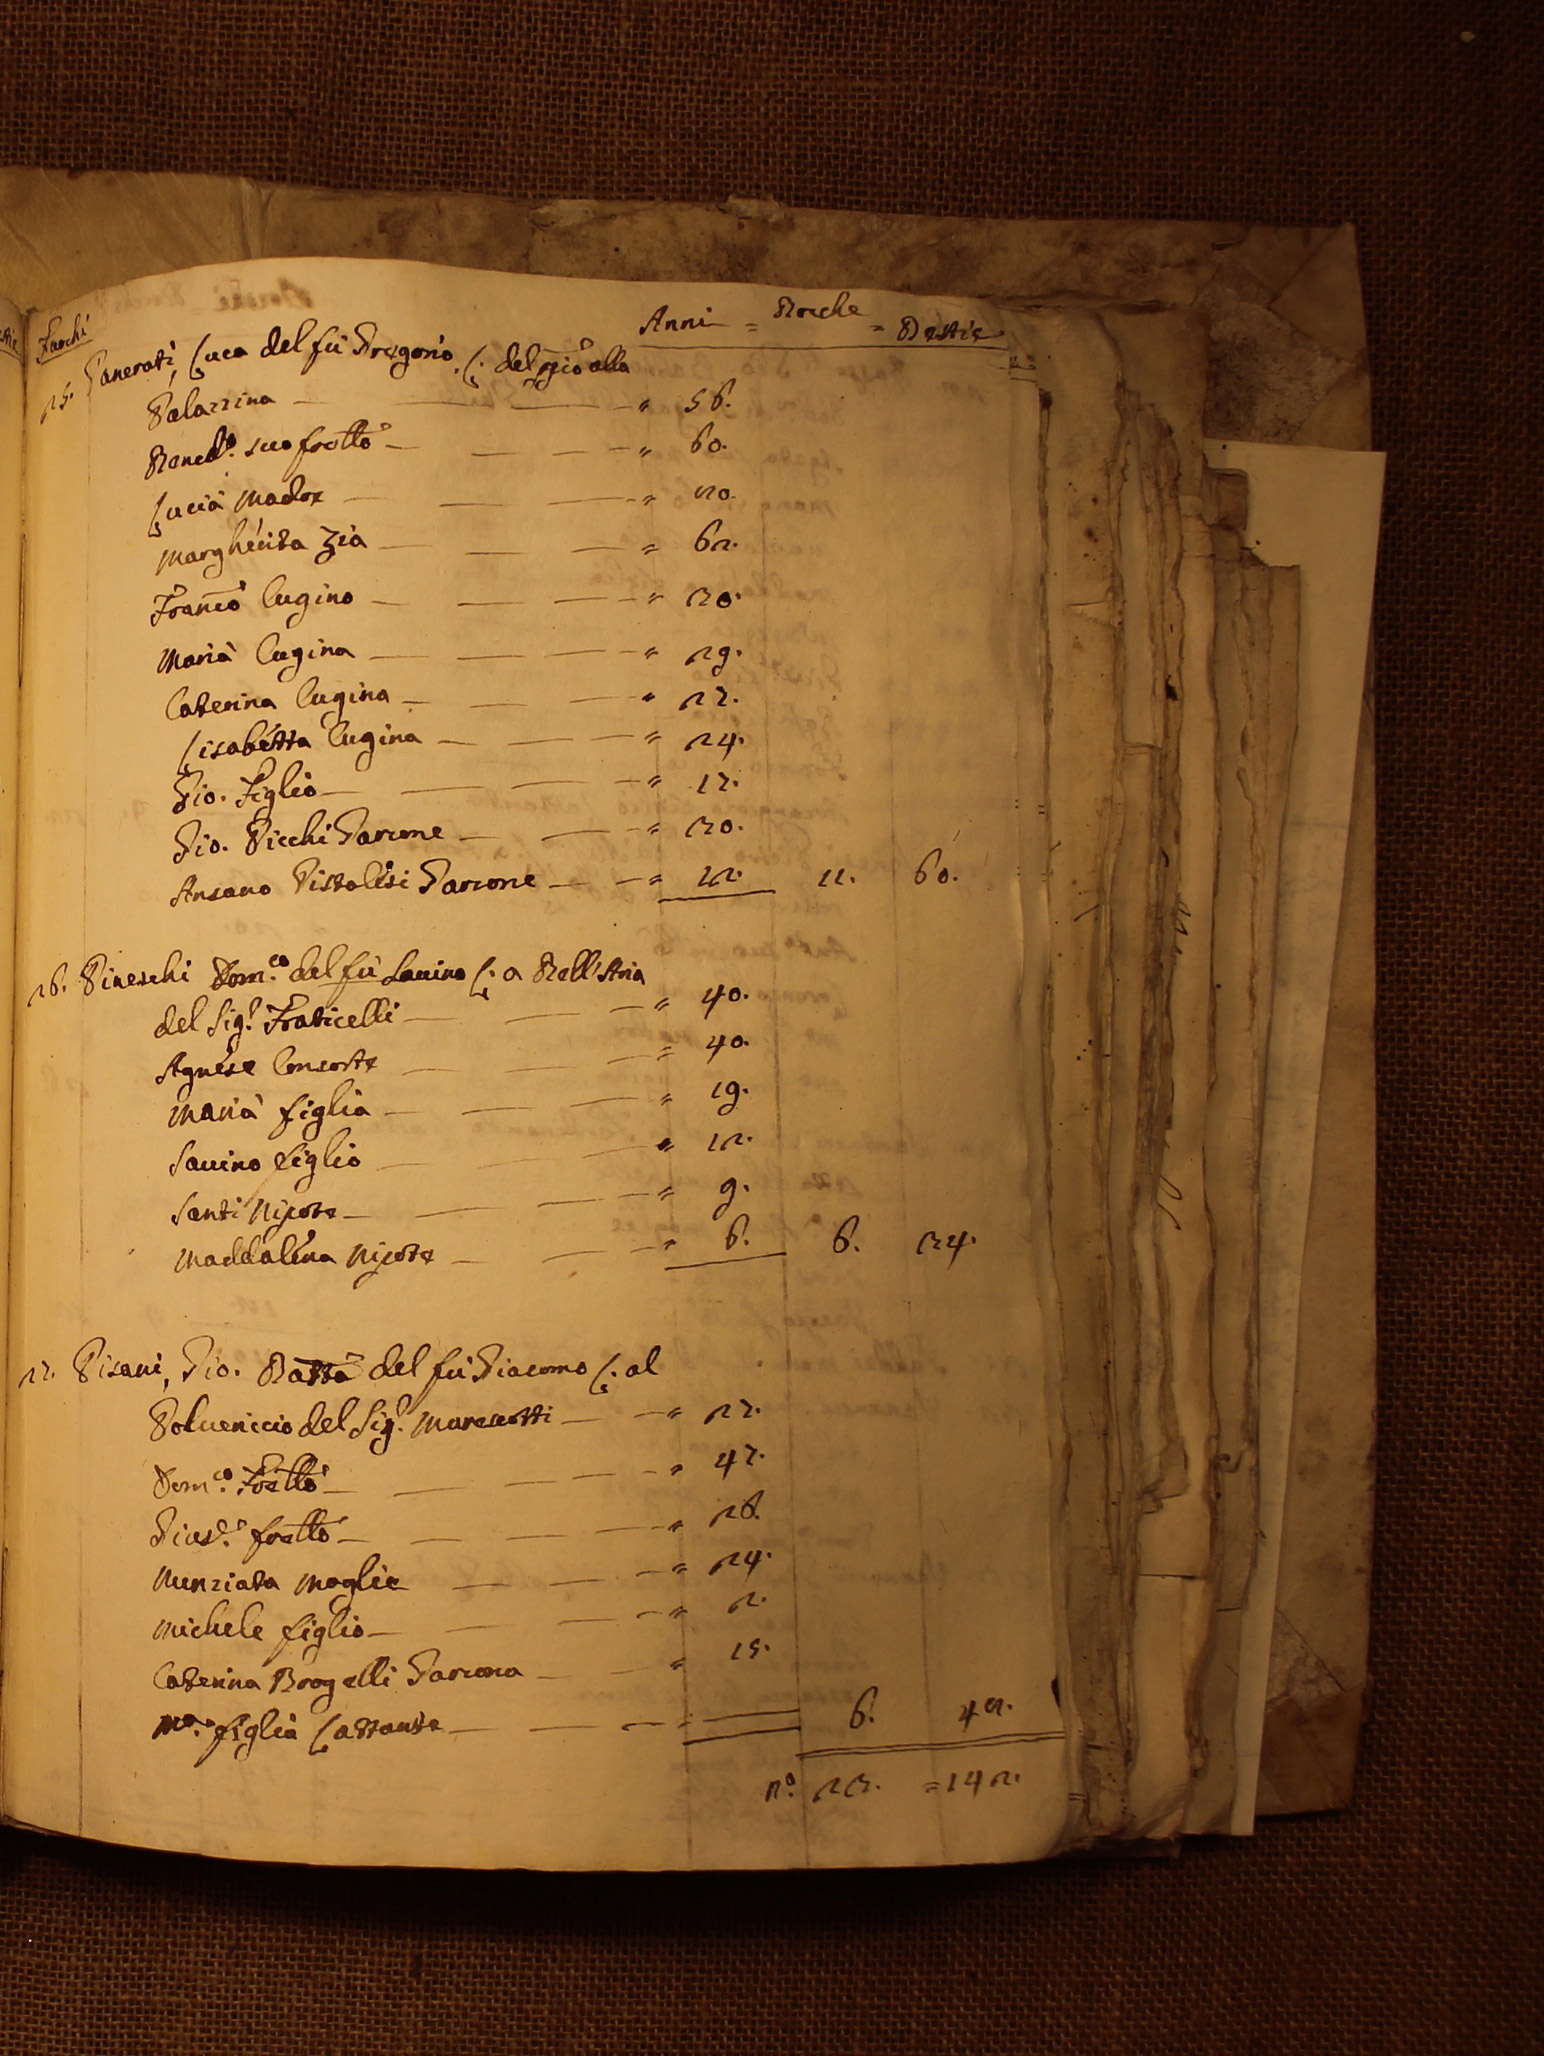 Fuochi Anni = Bocche = Bestie
25. Panerati, Luca del fù Gregorio (: del med.o alla
Palazzina — — — " 56.
Bened.o suo frat̃to — — — " 60.
Lucia Madre — — — " 20.
Margherita Zia — — — " 62.
Franc̃o Cugino — — — " 20.
Maria Cugina — — — " 29.
Caterina Cugina — — — " 27.
Lisabetta Cugina — — — " 24.
Gio. Figlio — — — " 17.
Gio. Picchi Garzone — — " 20.
Ansano Pistolesi Garzone — — " 12. 11. 60.
26. Pineschi Dom.co del fù Savino (: a Bell'Aria
del Sig.r Fraticelli — — — " 40.
Agnese Consorte — — " 40.
Maria figlia — — — " 19.
Savino figlio — — — " 12.
Santi Nipote — — — " 9.
Maddalena Nipote — — " 6. 6. 24.
27. Pisani, Gio. Batt̃a del fù Giacomo (: al
Poluericcio del Sig.r Marescotti — — " 27.
Dom.co Frat̃to — — — " 47.
Gius.e frat̃to — — — " 26.
Nunziata Moglie — — — " 24.
Michele figlio — — — " 2.
Caterina Brogelli Garzona — — " 15.
M.a figlia Lattante — — — " 6. 42.
N.o 23. = 142.